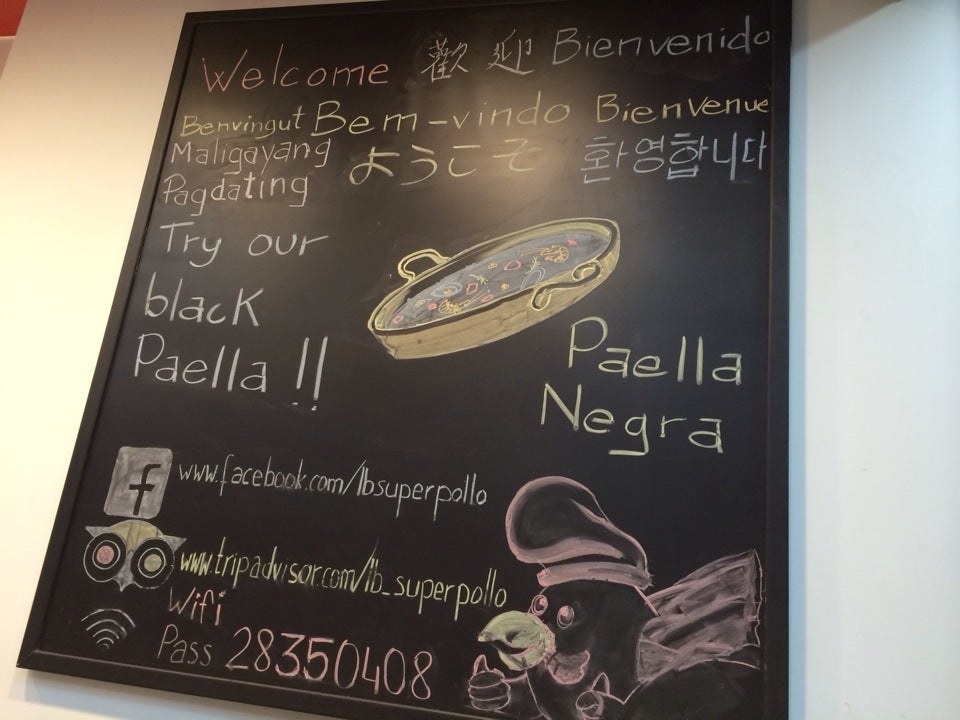 Welcome 歡迎 Bienvenido
Benvingut Bem-vindo Bienvenue
Maligayang
Pagdating
ようこそ 환영합니다
Try our
black
Paella !!
Paella
Negra
f www.facebook.com/lbsuperpollo
www.tripadvisor.com/lb_superpollo
Wifi
Pass 28350408